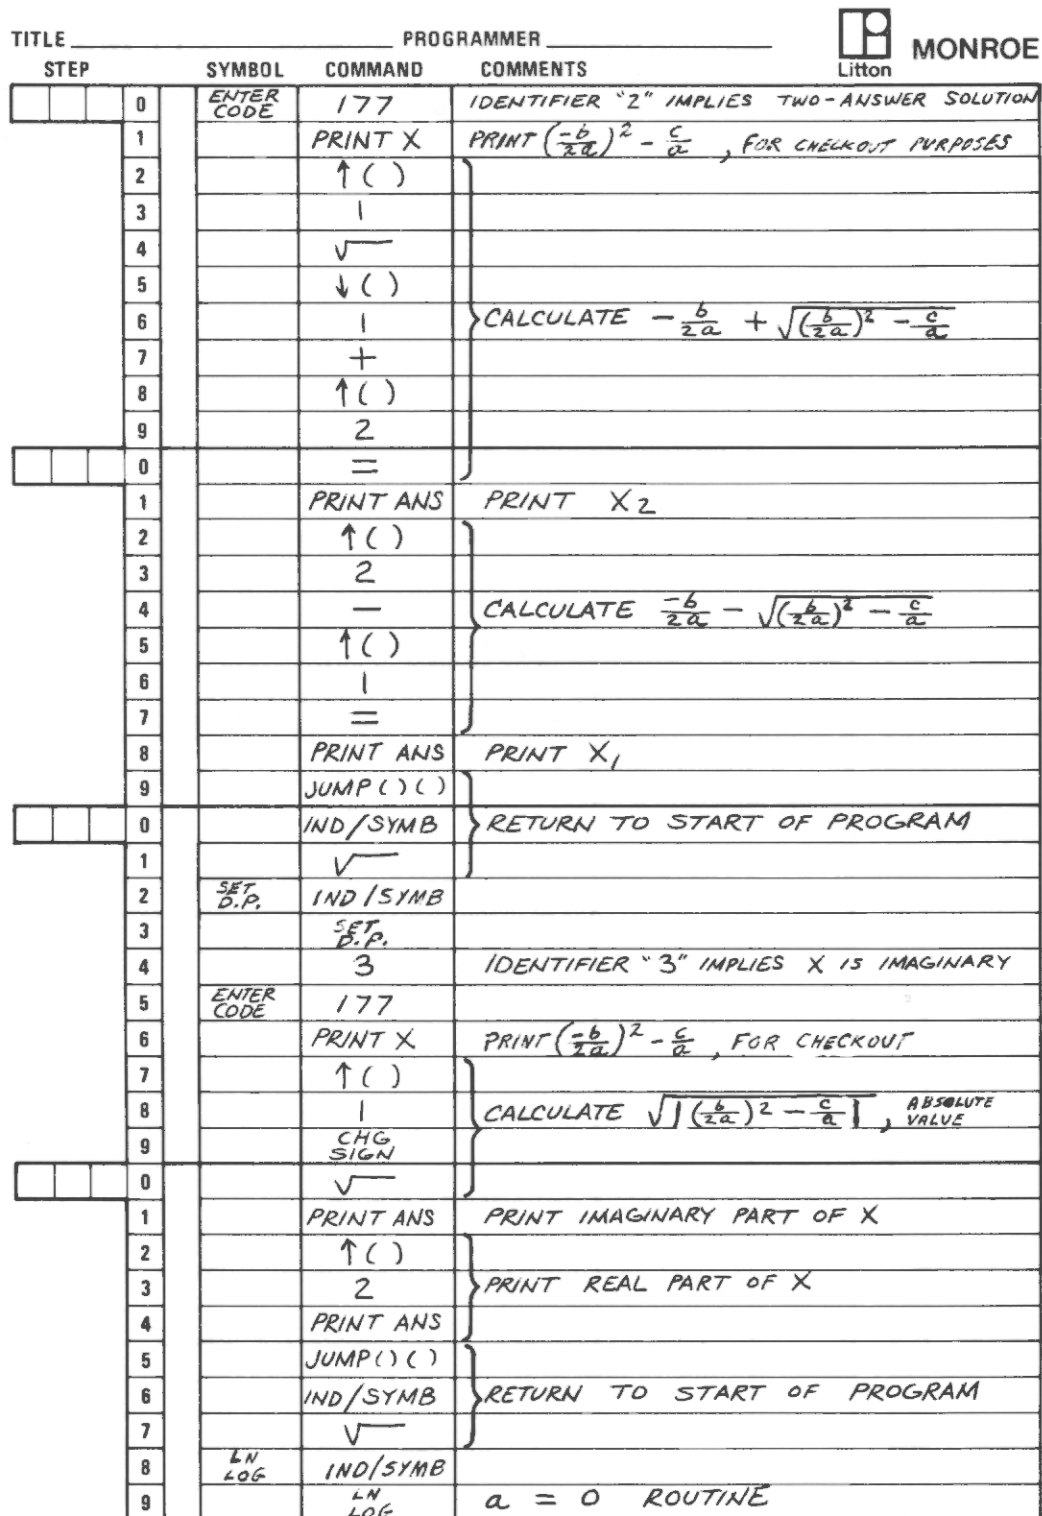 TITLE PROGRAMMER Litton MONROE
STEP SYMBOL COMMAND COMMENTS
0 ENTER CODE 177 IDENTIFIER "2" IMPLIES TWO-ANSWER SOLUTION
1 PRINT X PRINT (-b/2a)² - c/a , FOR CHECKOUT PURPOSES
2 ↑ ( )
3 1
4 √
5 ↓ ( )
6 1 CALCULATE - b/2a + √(b/2a)² - c/a
7 +
8 ↑ ( )
9 2
0 =
1 PRINT ANS PRINT X2
2 ↑ ( )
3 2
4 — CALCULATE -b/2a - √(b/2a)² - c/a
5 ↑ ( )
6 1
7 =
8 PRINT ANS PRINT X1
9 JUMP ( ) ( )
0 IND/SYMB RETURN TO START OF PROGRAM
1 √
2 SET D.P. IND/SYMB
3 SET D.P.
4 3 IDENTIFIER "3" IMPLIES X IS IMAGINARY
5 ENTER CODE 177
6 PRINT X PRINT (-b/2a)² - c/a , FOR CHECKOUT
7 ↑ ( )
8 1 CALCULATE √|(b/2a)² - c/a| , ABSOLUTE VALUE
9 CHG SIGN
0 √
1 PRINT ANS PRINT IMAGINARY PART OF X
2 ↑ ( )
3 2 PRINT REAL PART OF X
4 PRINT ANS
5 JUMP ( ) ( )
6 IND/SYMB RETURN TO START OF PROGRAM
7 √
8 LN LOG IND/SYMB
9 LN LOG a = 0 ROUTINE